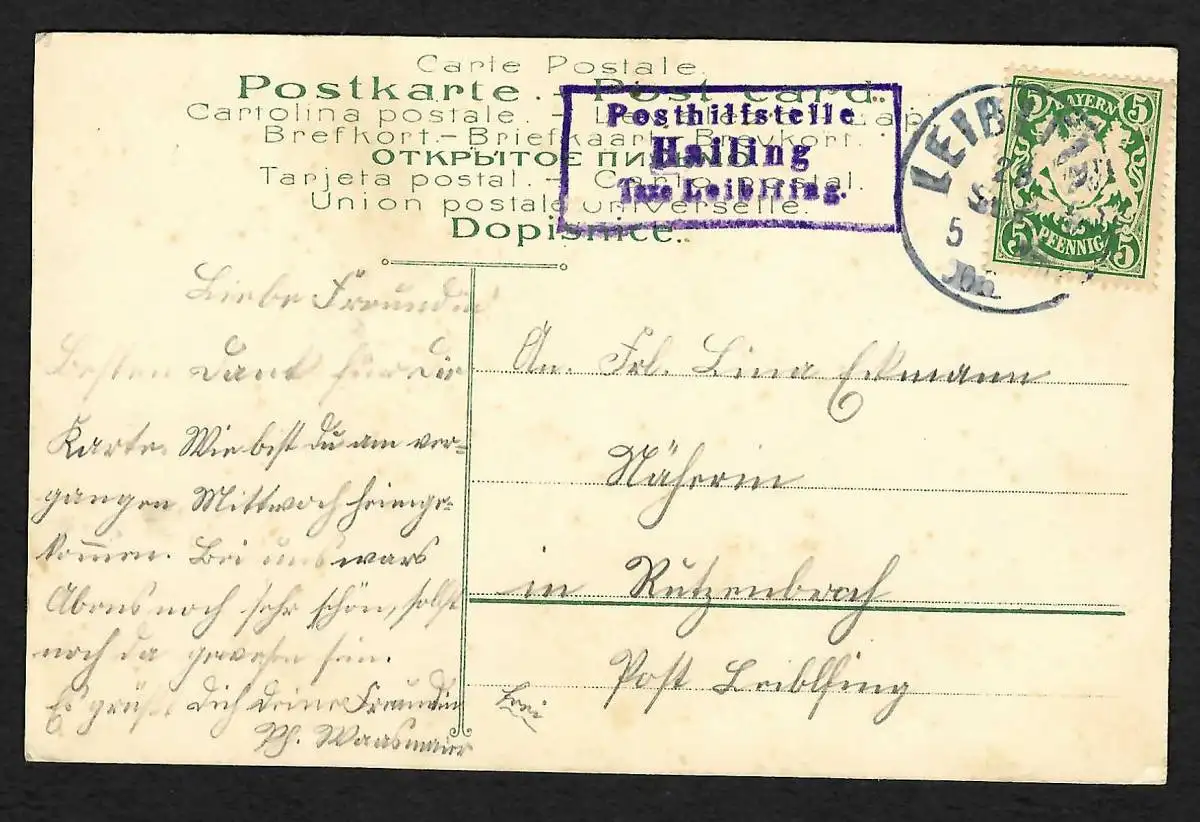 Carte Postale.
Postkarte. - Post card.
Cartolina postale. -
Brefkort. - Briefkaart - Brevkort.
ОТКРЫТОЕ ПИСЬМО
Tarjeta postal. - Carta postal.
Union postale universelle.
Dopisnice.
Posthilfstelle
Hailing
Taxe Leiblfing.
LEIBLFING
5
BAYERN
5 5
5 5
PFENNIG
Liebe Freundin
Besten Dank für die
Karte. Wie bist du am ver=
gangen Mittwoch heimge=
kommen. Bei uns wars
Abens noch sehr schön, solst
noch da gewesen sein.
Es grüßt Dich deine Freundin
Waasmaier
An. Frl. Lina Eckmann
Näherin
in Rutzenbach
Post Leiblfing